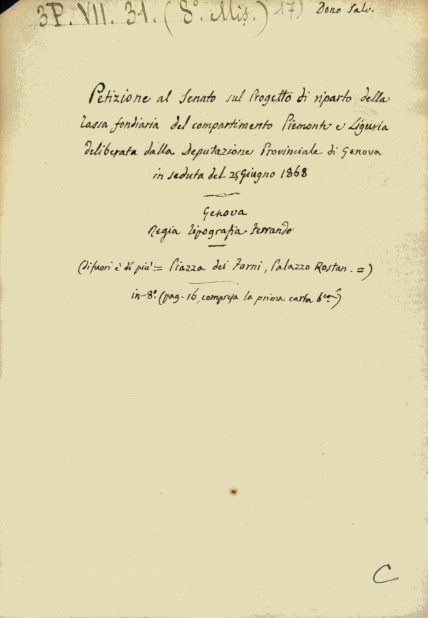 3P. VII. 31. (8º. Mis.) 17) Dono Salv.
Petizione al Senato sul Progetto di riparto della
tassa fondiaria del compartimento Piemonte e Liguria
deliberata dalla Deputazione Provinciale di Genova
in seduta del 25 Giugno 1868
Genova
Regia Tipografia Ferrando
(di fuori è di più := Piazza dei Forni, Palazzo Rostan. =)
in-8.º (pag. 16, compresa la prima carta bca)
C